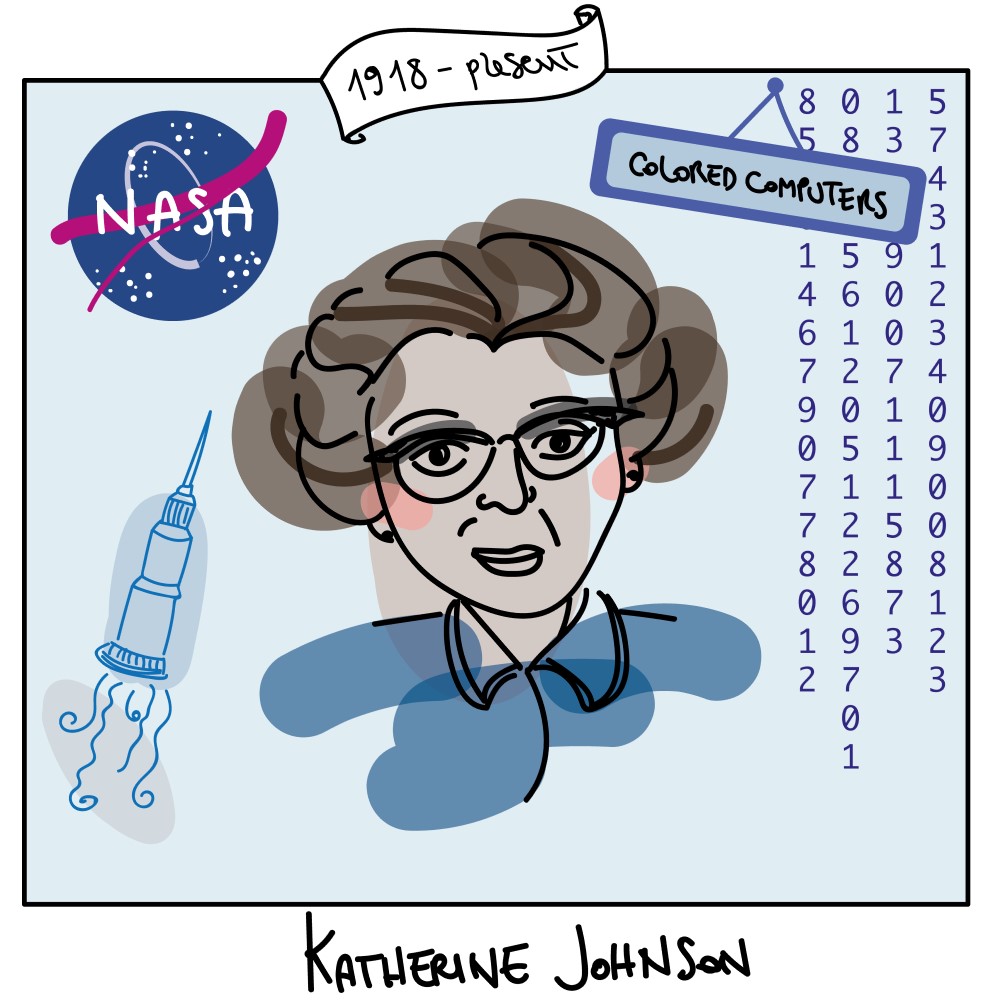 1918 - present
NASA
COLORED COMPUTERS
8 0 1 5
5 8 3 7
4
3
1 5 9 1
4 6 0 2
6 1 0 3
7 2 7 4
9 0 1 0
0 5 1 9
7 1 1 0
7 2 5 0
8 2 8 8
0 6 7 1
1 9 3 2
2 7 3
0
1
KATHERINE JOHNSON